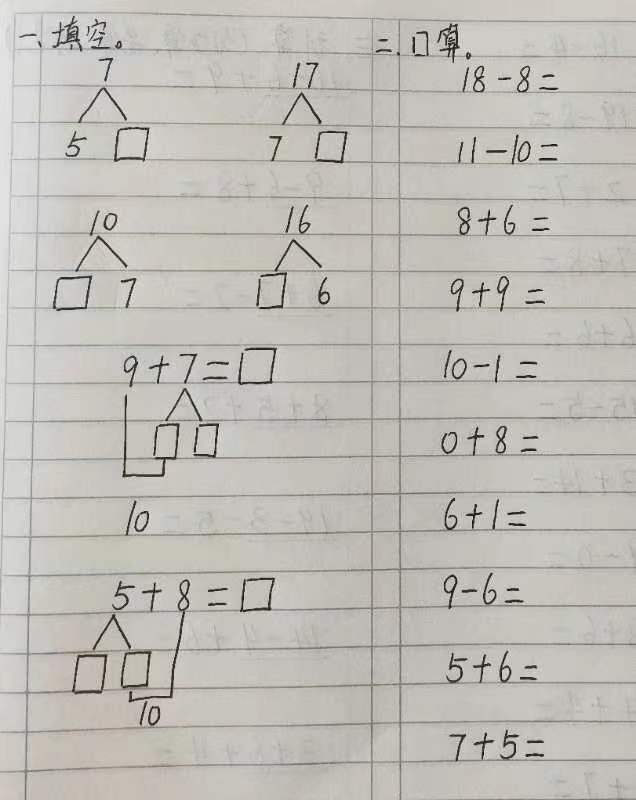 一、填空。
7
5 □
17
7 □
10
□ 7
16
□ 6
9+7=□
□ □
10
5+8=□
□ □
10
二、口算。
18-8=
11-10=
8+6=
9+9=
10-1=
0+8=
6+1=
9-6=
5+6=
7+5=